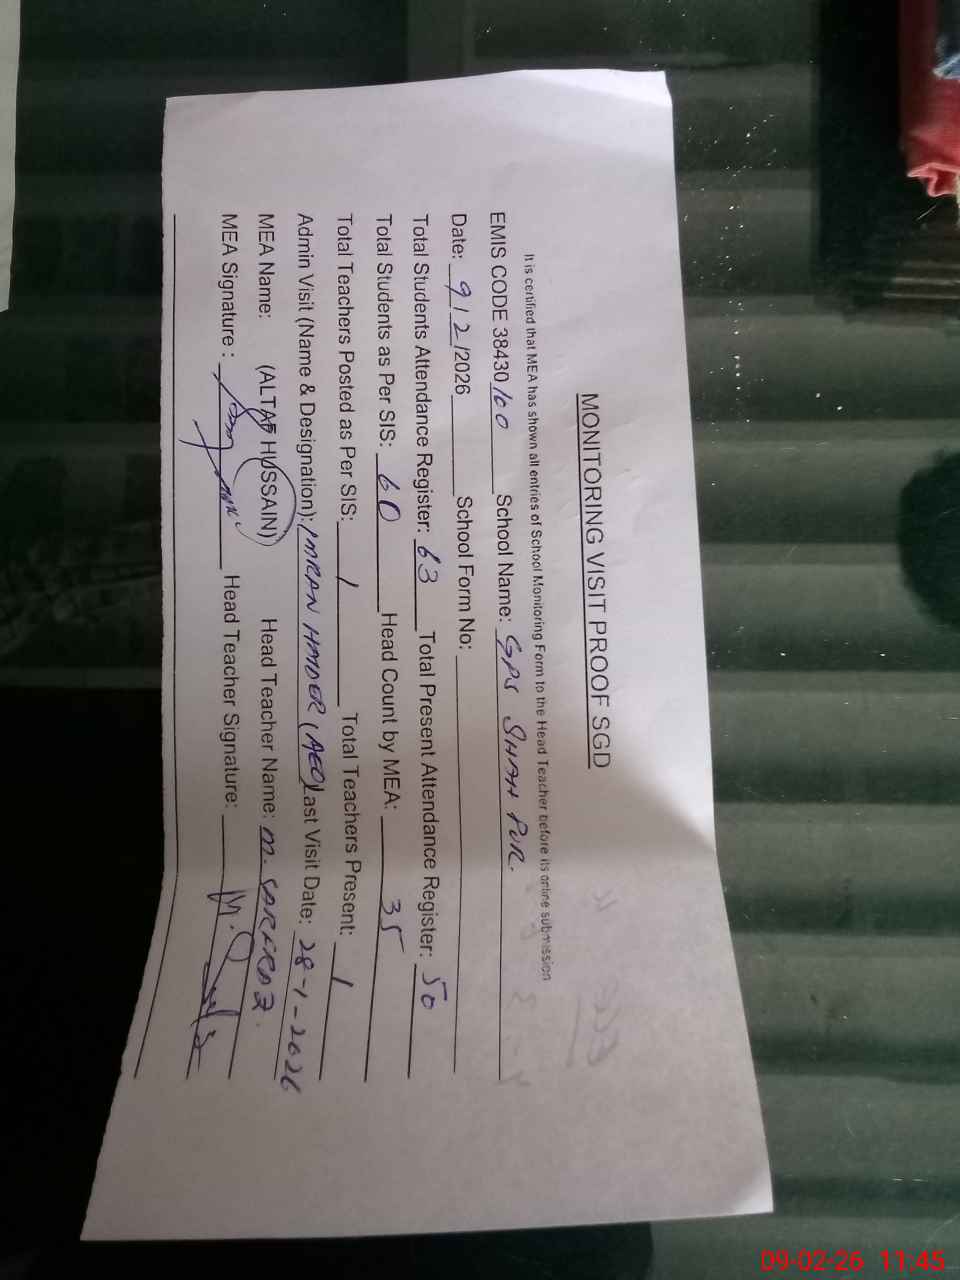 MONITORING VISIT PROOF SGD
It is certified that MEA has shown all entries of School Monitoring Form to the Head Teacher before its online submission
EMIS CODE 38430100 School Name: GPS SHAH PUR.
Date: 9/2/2026 School Form No:
Total Students Attendance Register: 63 Total Present Attendance Register: 50
Total Students as Per SIS: 60 Head Count by MEA: 35
Total Teachers Posted as Per SIS: 1 Total Teachers Present: 1
Admin Visit (Name & Designation): IMRAN HAIDER (AEO) last Visit Date: 28-1-2026
MEA Name: (ALTAF HUSSAIN) Head Teacher Name: M. SARFRAZ.
MEA Signature : Head Teacher Signature:
09-02-26 11:45